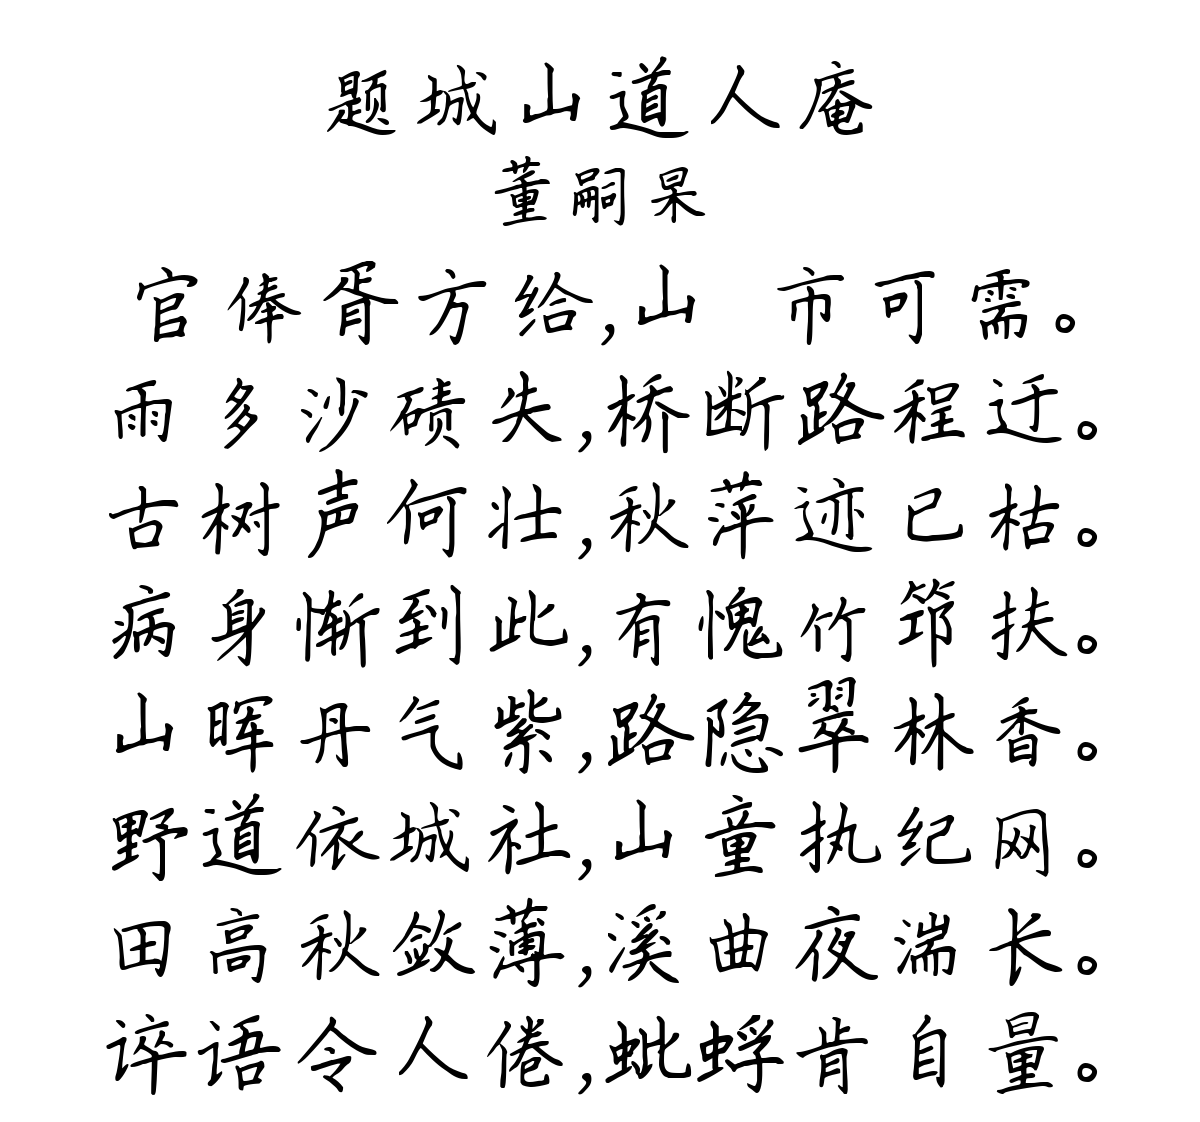 题城山道人庵
董嗣杲
官俸胥方给,山 市可需。
雨多沙碛失,桥断路程迂。
古树声何壮,秋萍迹已枯。
病身惭到此,有愧竹筇扶。
山晖丹气紫,路隐翠林香。
野道依城社,山童执纪网。
田高秋敛薄,溪曲夜湍长。
谇语令人倦,蚍蜉肯自量。